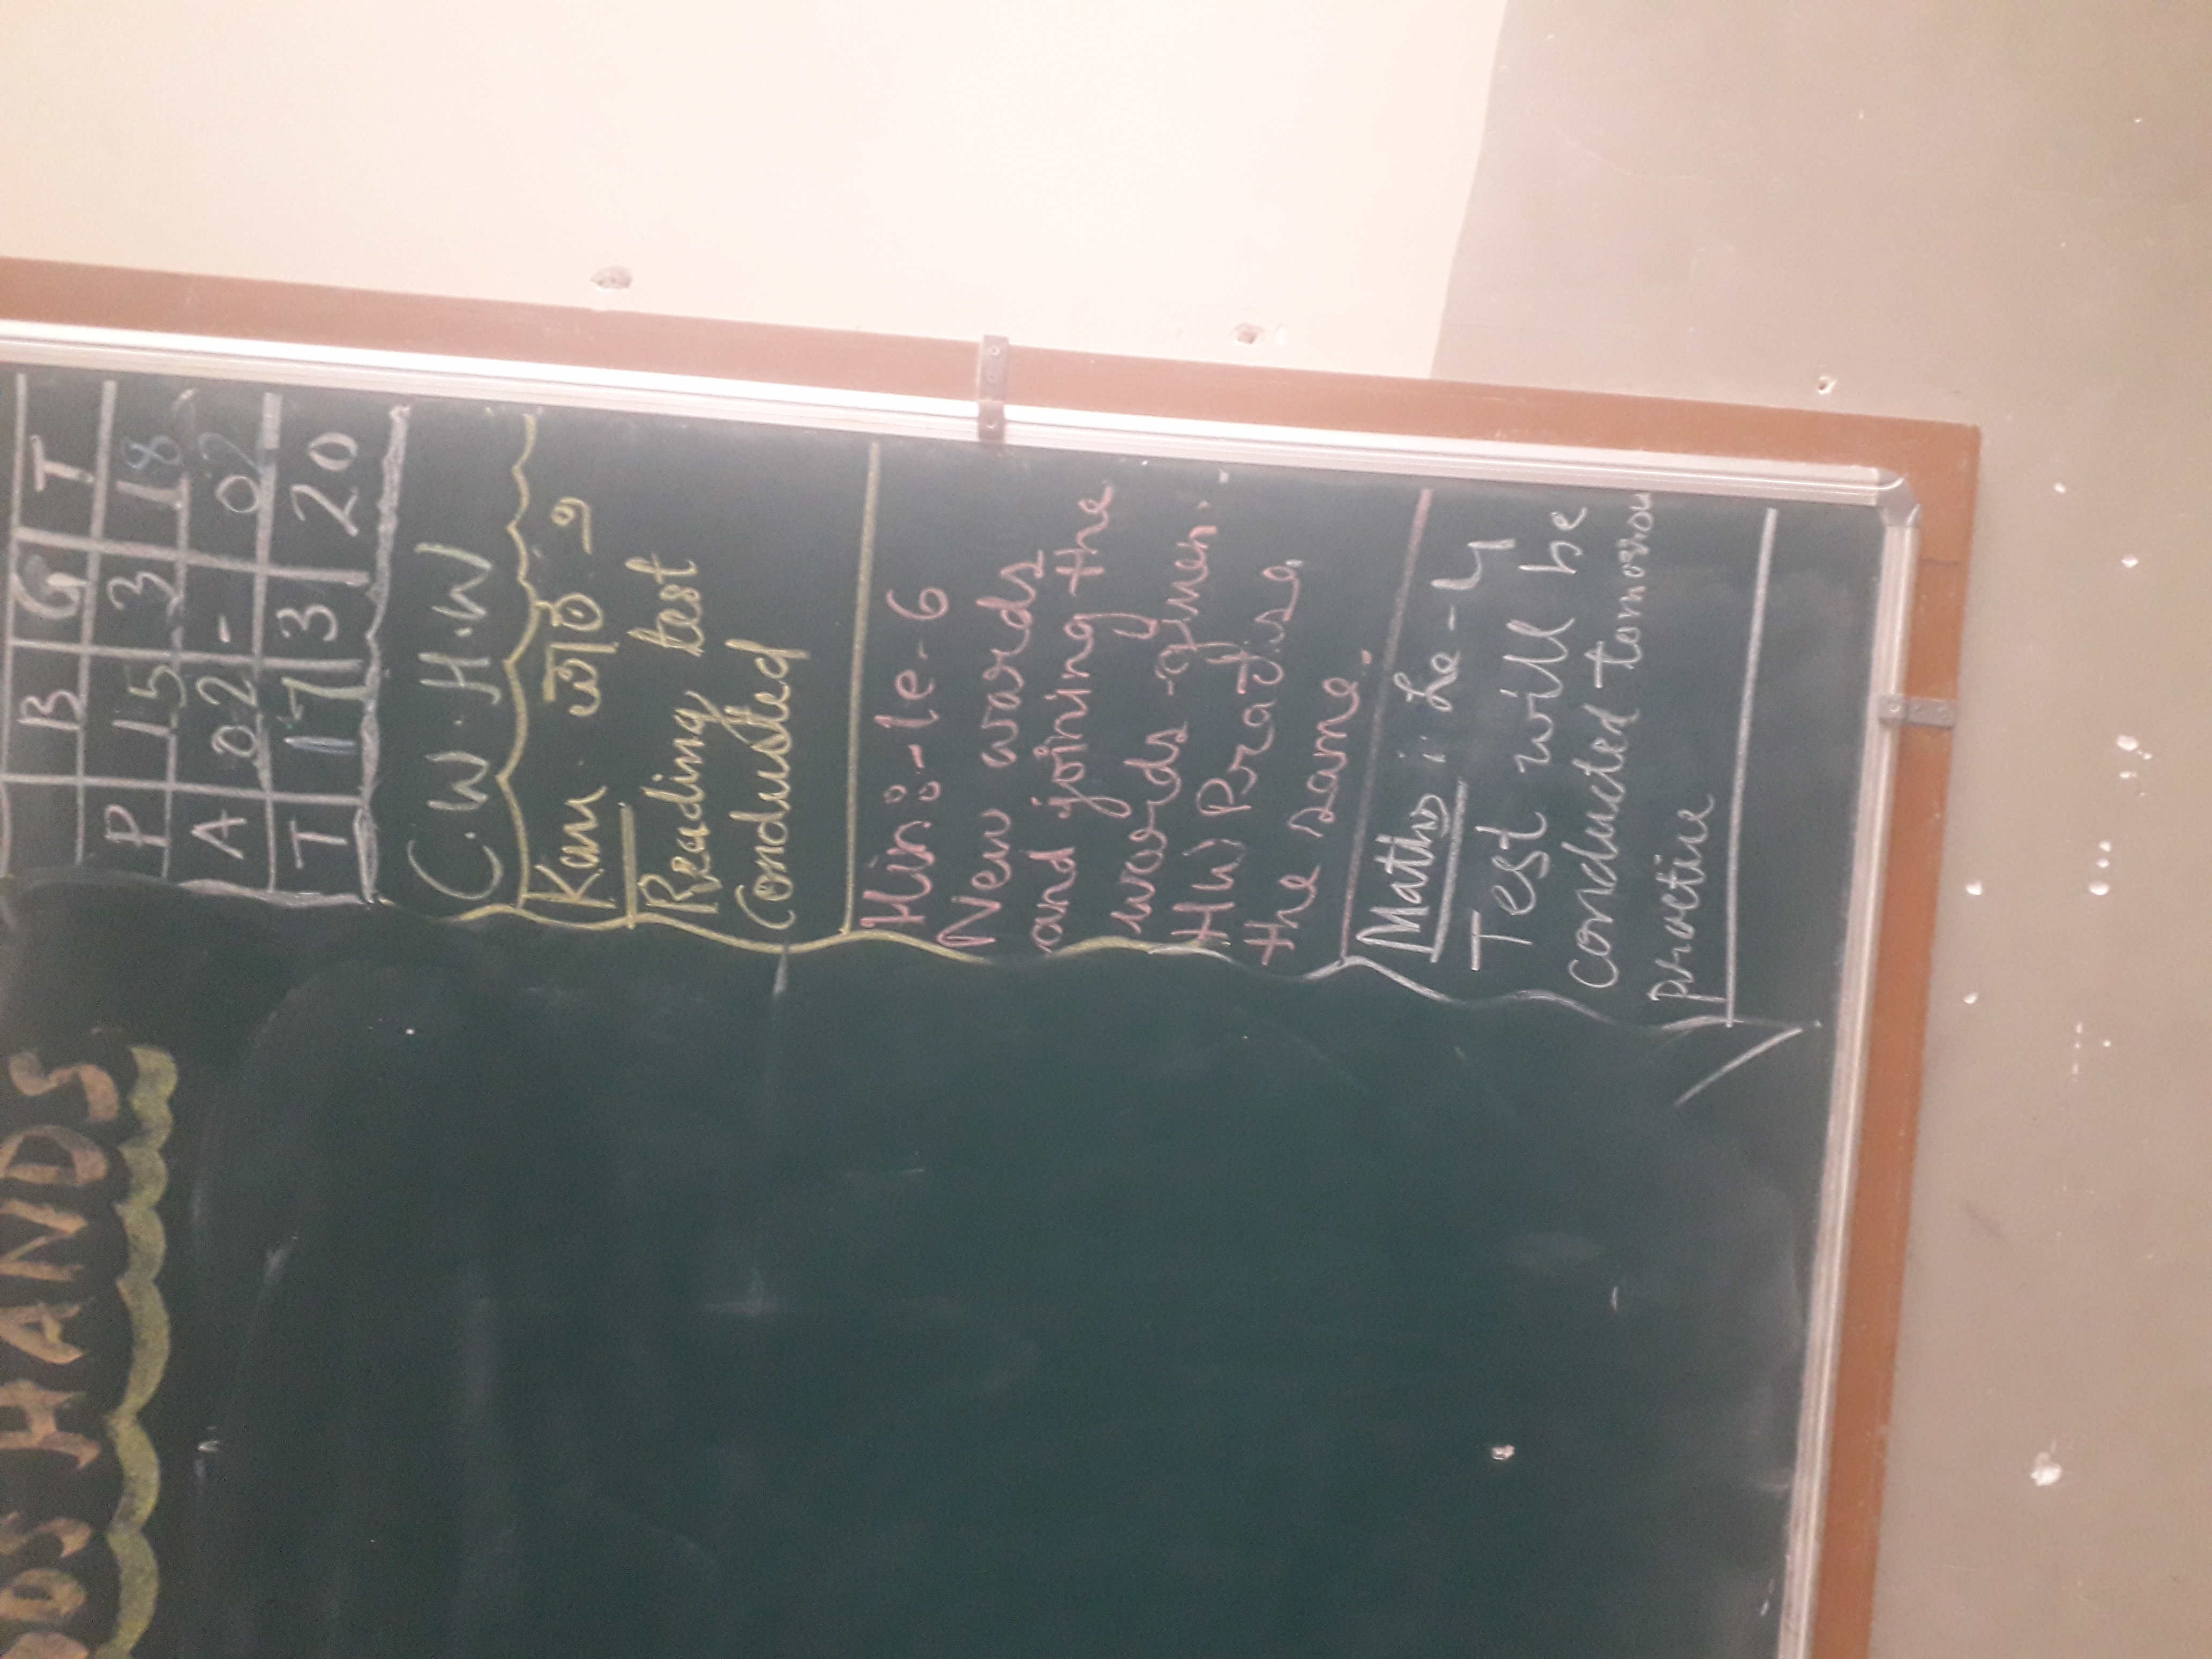 B G T
P 15 3 18
A 02 - 02
T 17 3 20
C.W. H.W
Kan
Reading test
Conducted
Hin:-le-6
New words
and joining the
words given.
HW Practise
the same.
Maths : Le-4
Test will be
conducted tomorrow
practice
HANDS